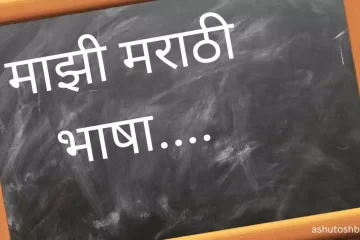 माझी मराठी
भाषा....
ashutoshb